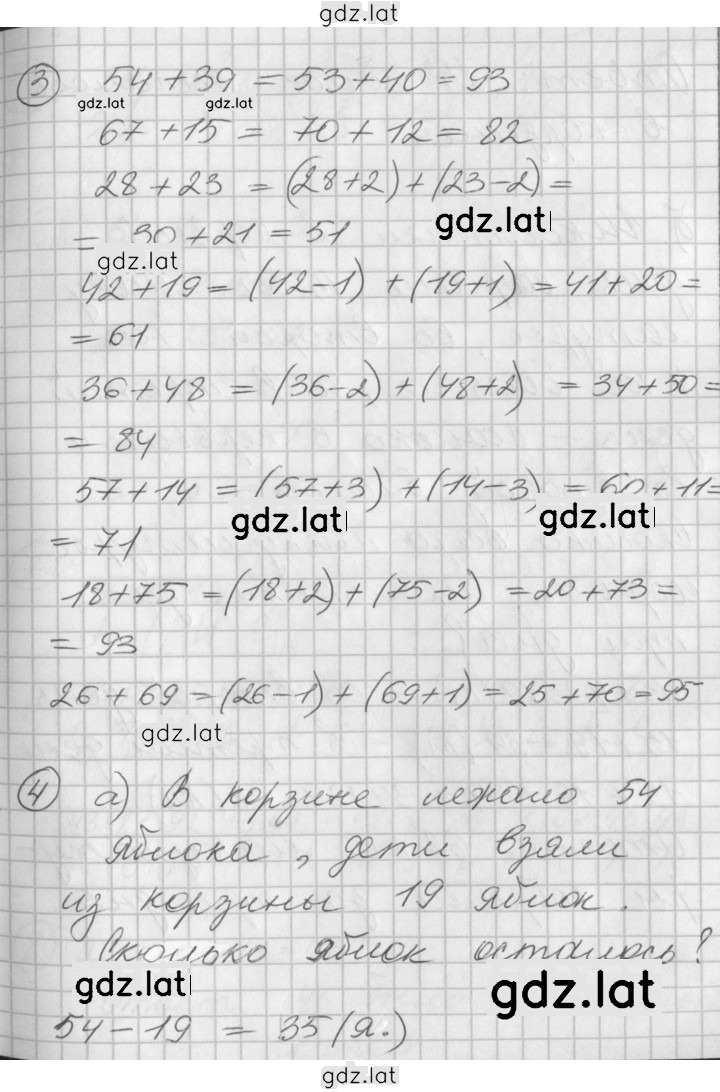 gdz.lat
3 54 + 39 = 53 + 40 = 93
gdz.lat gdz.lat
67 + 15 = 70 + 12 = 82
28 + 23 = (28 + 2) + (23 - 2) =
gdz.lat
= 30 + 21 = 51
gdz.lat
42 + 19 = (42 - 1) + (19 + 1) = 41 + 20 =
= 61
36 + 48 = (36 - 2) + (48 + 2) = 34 + 50 =
= 84
57 + 14 = (57 + 3) + (14 - 3) = 60 + 11 =
gdz.lat gdz.lat
= 71
18 + 75 = (18 + 2) + (75 - 2) = 20 + 73 =
= 93
26 + 69 = (26 - 1) + (69 + 1) = 25 + 70 = 95
gdz.lat
4 а) В корзине лежало 54
яблока, дети взяли
из корзины 19 яблок.
Сколько яблок осталось?
gdz.lat gdz.lat
54 - 19 = 35 (я.)
gdz.lat